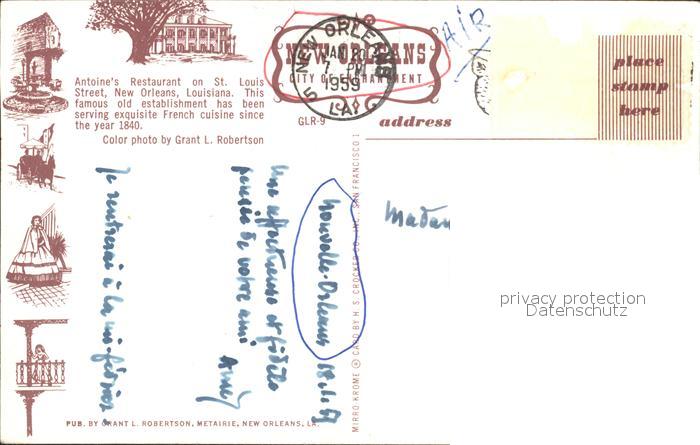 Antoine's Restaurant on St. Louis
Street, New Orleans, Louisiana. This
famous old establishment has been
serving exquisite French cuisine since
the year 1840.
Color photo by Grant L. Robertson
NEW ORLEANS
CITY OF ENCHANTMENT
NEW ORLEANS
JAN 20
7 PM
1959
5 LA.
GLR-9
AIR
address
place
stamp
here
Nouvelle-Orléans
une affectueuse et fidèle
pensée de votre ami
Je rentrerai à la mi-février.
Madam
privacy protection
Datenschutz
MIRRO-KROME ® CARD BY H. S. CROCKER CO., INC., SAN FRANCISCO 1
PUB. BY GRANT L. ROBERTSON, METAIRIE, NEW ORLEANS, LA.